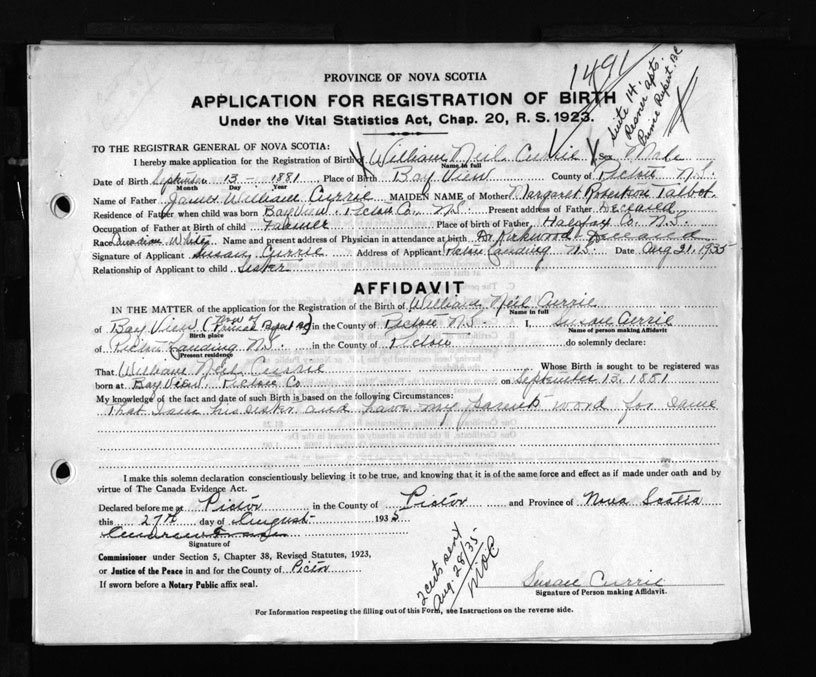 1491
Suite 14.
Besner apts.
Prince Rupert. BC
PROVINCE OF NOVA SCOTIA
APPLICATION FOR REGISTRATION OF BIRTH
Under the Vital Statistics Act, Chap. 20, R. S. 1923.
TO THE REGISTRAR GENERAL OF NOVA SCOTIA:
I hereby make application for the Registration of Birth of William Neil Currie Sex Male
Name in full
Date of Birth September 13 - 1881 Place of Birth Bay View County of Pictou N.S.
Month Day Year
Name of Father James William Currie MAIDEN NAME of Mother Margaret Robertson Talbot
Residence of Father when child was born Bay View. Pictou Co. N.S. Present address of Father Deceased
Occupation of Father at Birth of child Farmer Place of birth of Father, Halifax Co. N.S.
Race Canadian White Name and present address of Physician in attendance at birth Dr Kirkwood Deceased
Signature of Applicant Susan Currie Address of Applicant Pictou Landing N.S. Date Aug 21, 1935
Relationship of Applicant to child Sister
AFFIDAVIT
IN THE MATTER of the application for the Registration of the Birth of William Neil Currie
Name in full
of Bay View (Now of Prince Rupert BC) in the County of Pictou N.S. I, Susan Currie
Birth place Name of person making Affidavit
of Pictou Landing N.S. in the County of Pictou do solemnly declare:
Present residence
That William Neil Currie Whose Birth is sought to be registered was
born at Bay View. Pictou Co on September 13. 1881
My knowledge of the fact and date of such Birth is based on the following Circumstances:
That I am his sister and have my parents word for same
I make this solemn declaration conscientiously believing it to be true, and knowing that it is of the same force and effect as if made under oath and by
virtue of The Canada Evidence Act.
Declared before me at Pictou in the County of Pictou and Province of Nova Scotia
this 27th day of August 1935
Signature of
Commissioner under Section 5, Chapter 38, Revised Statutes, 1923,
or Justice of the Peace in and for the County of Pictou
If sworn before a Notary Public affix seal.
2 certs sent
Aug. 28/35
Susan Currie
Signature of Person making Affidavit.
For Information respecting the filling out of this Form, see Instructions on the reverse side.